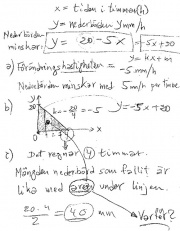 x = tiden i timmar (h)
y = nederbörden y mm/h
Nederbörden
minskar: y = 20-5x = -5x+20
y = kx+m
a) Förändringshastigheten = -5 mm/h
Nederbörden minskar med 5 mm per timme
b) y
20
-20/4 = -5 y = -5x+20
4 x
c) Det regnar 4 timmar.
Mängden nederbörd som fallit är
lika med arean under linjen.
20·4/2 = 40 mm Varför?